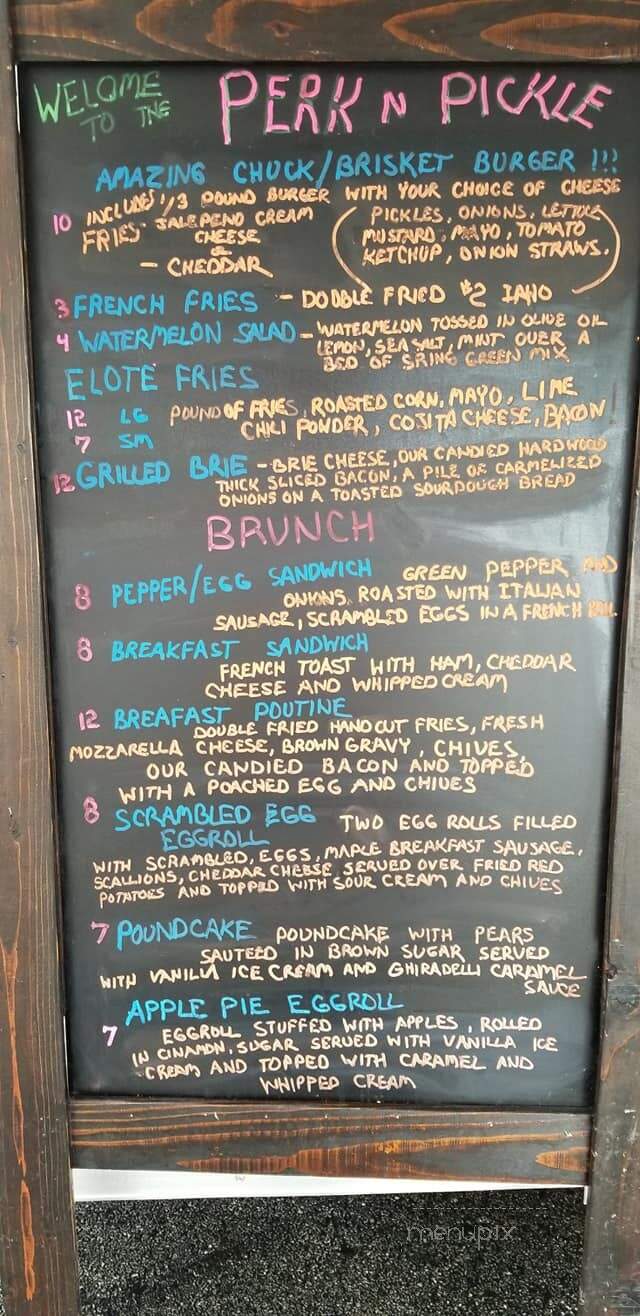 WELOME
TO THE
PERK N PICKLE
AMAZING CHUCK/BRISKET BURGER !!!
10 INCLUDES 1/3 POUND BURGER WITH YOUR CHOICE OF CHEESE
FRIES JALEPENO CREAM
CHEESE
&
- CHEDDAR
(PICKLES, ONIONS, LETTUCE
MUSTARD, MAYO, TOMATO
KETCHUP, ONION STRAWS.)
3 FRENCH FRIES - DOUBLE FRIED #2 IAHO
4 WATERMELON SALAD - WATERMELON TOSSED IN OLIVE OIL
LEMON, SEA SALT, MINT OVER A
BED OF SRING GREEN MIX
ELOTE FRIES
12 LG POUND OF FRIES, ROASTED CORN, MAYO, LIME
7 SM CHILI POWDER, COJITA CHEESE, BACON
12 GRILLED BRIE - BRIE CHEESE, OUR CANDIED HARDWOOD
THICK SLICED BACON, A PILE OF CARMELIZED
ONIONS ON A TOASTED SOURDOUGH BREAD
BRUNCH
8 PEPPER/EGG SANDWICH GREEN PEPPER AND
ONIONS ROASTED WITH ITALIAN
SAUSAGE, SCRAMBLED EGGS IN A FRENCH
8 BREAKFAST SANDWICH
FRENCH TOAST WITH HAM, CHEDDAR
CHEESE AND WHIPPED CREAM
12 BREAFAST POUTINE
DOUBLE FRIED HAND CUT FRIES, FRESH
MOZZARELLA CHEESE, BROWN GRAVY, CHIVES,
OUR CANDIED BACON AND TOPPED
WITH A POACHED EGG AND CHIVES
8 SCRAMBLED EGG TWO EGG ROLLS FILLED
EGGROLL
WITH SCRAMBLED, EGGS, MAPLE BREAKFAST SAUSAGE,
SCALLIONS, CHEDDAR CHEESE SERVED OVER FRIED RED
POTATOES AND TOPPED WITH SOUR CREAM AND CHIVES
7 POUNDCAKE POUNDCAKE WITH PEARS
SAUTEED IN BROWN SUGAR SERVED
WITH VANILLA ICE CREAM AND GHIRADELLI CARAMEL
SAUCE
APPLE PIE EGGROLL
7 EGGROLL STUFFED WITH APPLES, ROLLED
IN CINAMON, SUGAR SERVED WITH VANILLA ICE
CREAM AND TOPPED WITH CARAMEL AND
WHIPPED CREAM
menupix